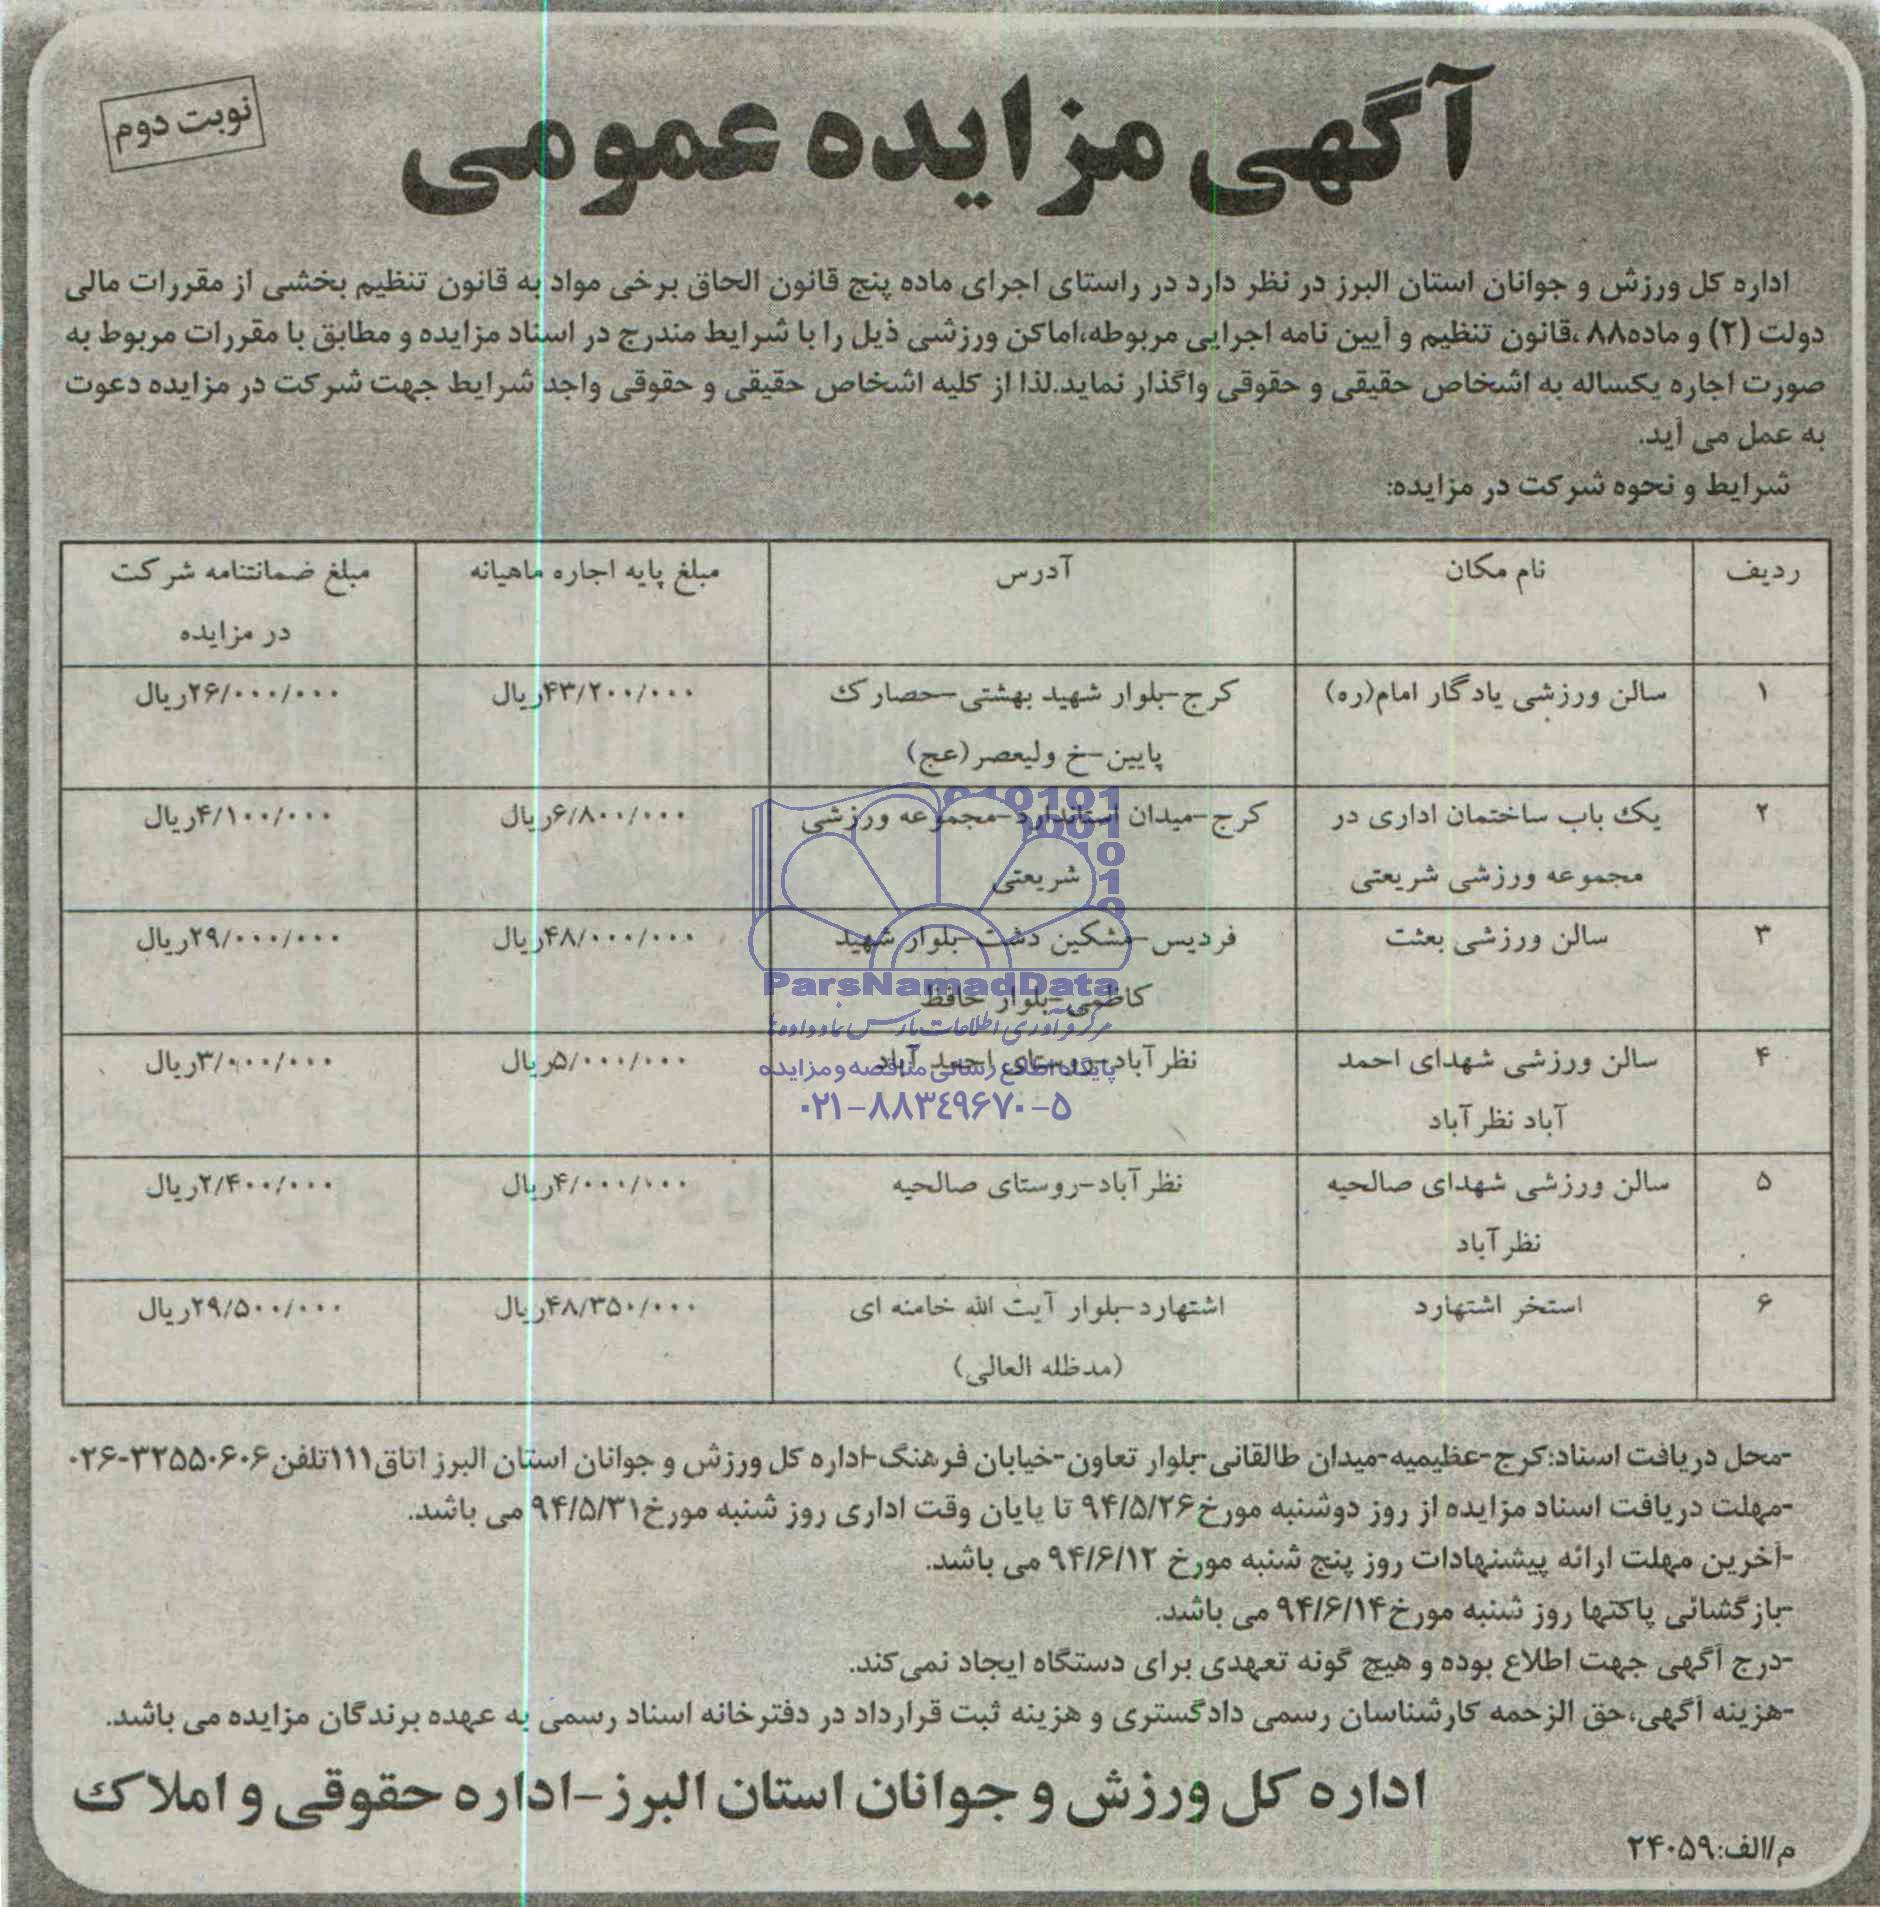 آگهی مزایده عمومی
نوبت دوم
اداره کل ورزش و جوانان استان البرز در نظر دارد در راستای اجرای ماده پنج قانون الحاق برخی مواد به قانون تنظیم بخشی از مقررات مالی
دولت (۲) و ماده۸۸ ،قانون تنظیم و آیین نامه اجرایی مربوطه،اماکن ورزشی ذیل را با شرایط مندرج در اسناد مزایده و مطابق با مقررات مربوط به
صورت اجاره یکساله به اشخاص حقیقی و حقوقی واگذار نماید.لذا از کلیه اشخاص حقیقی و حقوقی واجد شرایط جهت شرکت در مزایده دعوت
به عمل می آید.
شرایط و نحوه شرکت در مزایده:
ردیف نام مکان آدرس مبلغ پایه اجاره ماهیانه مبلغ ضمانتنامه شرکت
در مزایده
۱ سالن ورزشی یادگار امام(ره) کرج-بلوار شهید بهشتی-حصارک ۴۳/۲۰۰/۰۰۰ریال ۲۶/۰۰۰/۰۰۰ریال
پایین-خ ولیعصر(عج)
۲ یک باب ساختمان اداری در کرج-میدان استاندارد-مجموعه ورزشی ۶/۸۰۰/۰۰۰ریال ۴/۱۰۰/۰۰۰ریال
مجموعه ورزشی شریعتی شریعتی
۳ سالن ورزشی بعثت فردیس-مشکین دشت-بلوار شهید ۴۸/۰۰۰/۰۰۰ریال ۲۹/۰۰۰/۰۰۰ریال
کاظمی-بلوار حافظ
۴ سالن ورزشی شهدای احمد نظرآباد-روستای احمد آباد ۵/۰۰۰/۰۰۰ریال ۳/۰۰۰/۰۰۰ریال
آباد نظرآباد
۵ سالن ورزشی شهدای صالحیه نظرآباد-روستای صالحیه ۴/۰۰۰/۰۰۰ریال ۲/۴۰۰/۰۰۰ریال
نظرآباد
۶ استخر اشتهارد اشتهارد-بلوار آیت الله خامنه ای ۴۸/۳۵۰/۰۰۰ریال ۲۹/۵۰۰/۰۰۰ریال
(مدظله العالی)
ParsNamadData
مرکز فرآوری اطلاعات پارس نماد داده ها
پایگاه اطلاع رسانی مناقصه و مزایده
۰۲۱-۸۸۳۴۹۶۷۰-۵
-محل دریافت اسناد:کرج-عظیمیه-میدان طالقانی-بلوار تعاون-خیابان فرهنگ-اداره کل ورزش و جوانان استان البرز اتاق۱۱۱تلفن۳۲۵۵۰۶۰۶-۰۲۶
-مهلت دریافت اسناد مزایده از روز دوشنبه مورخ۹۴/۵/۲۶ تا پایان وقت اداری روز شنبه مورخ۹۴/۵/۳۱ می باشد.
-آخرین مهلت ارائه پیشنهادات روز پنج شنبه مورخ ۹۴/۶/۱۲ می باشد.
-بازگشائی پاکتها روز شنبه مورخ۹۴/۶/۱۴ می باشد.
-درج آگهی جهت اطلاع بوده و هیچ گونه تعهدی برای دستگاه ایجاد نمی‌کند.
-هزینه آگهی،حق الزحمه کارشناسان رسمی دادگستری و هزینه ثبت قرارداد در دفترخانه اسناد رسمی به عهده برندگان مزایده می باشد.
اداره کل ورزش و جوانان استان البرز-اداره حقوقی و املاک
م/الف:۲۴۰۵۹